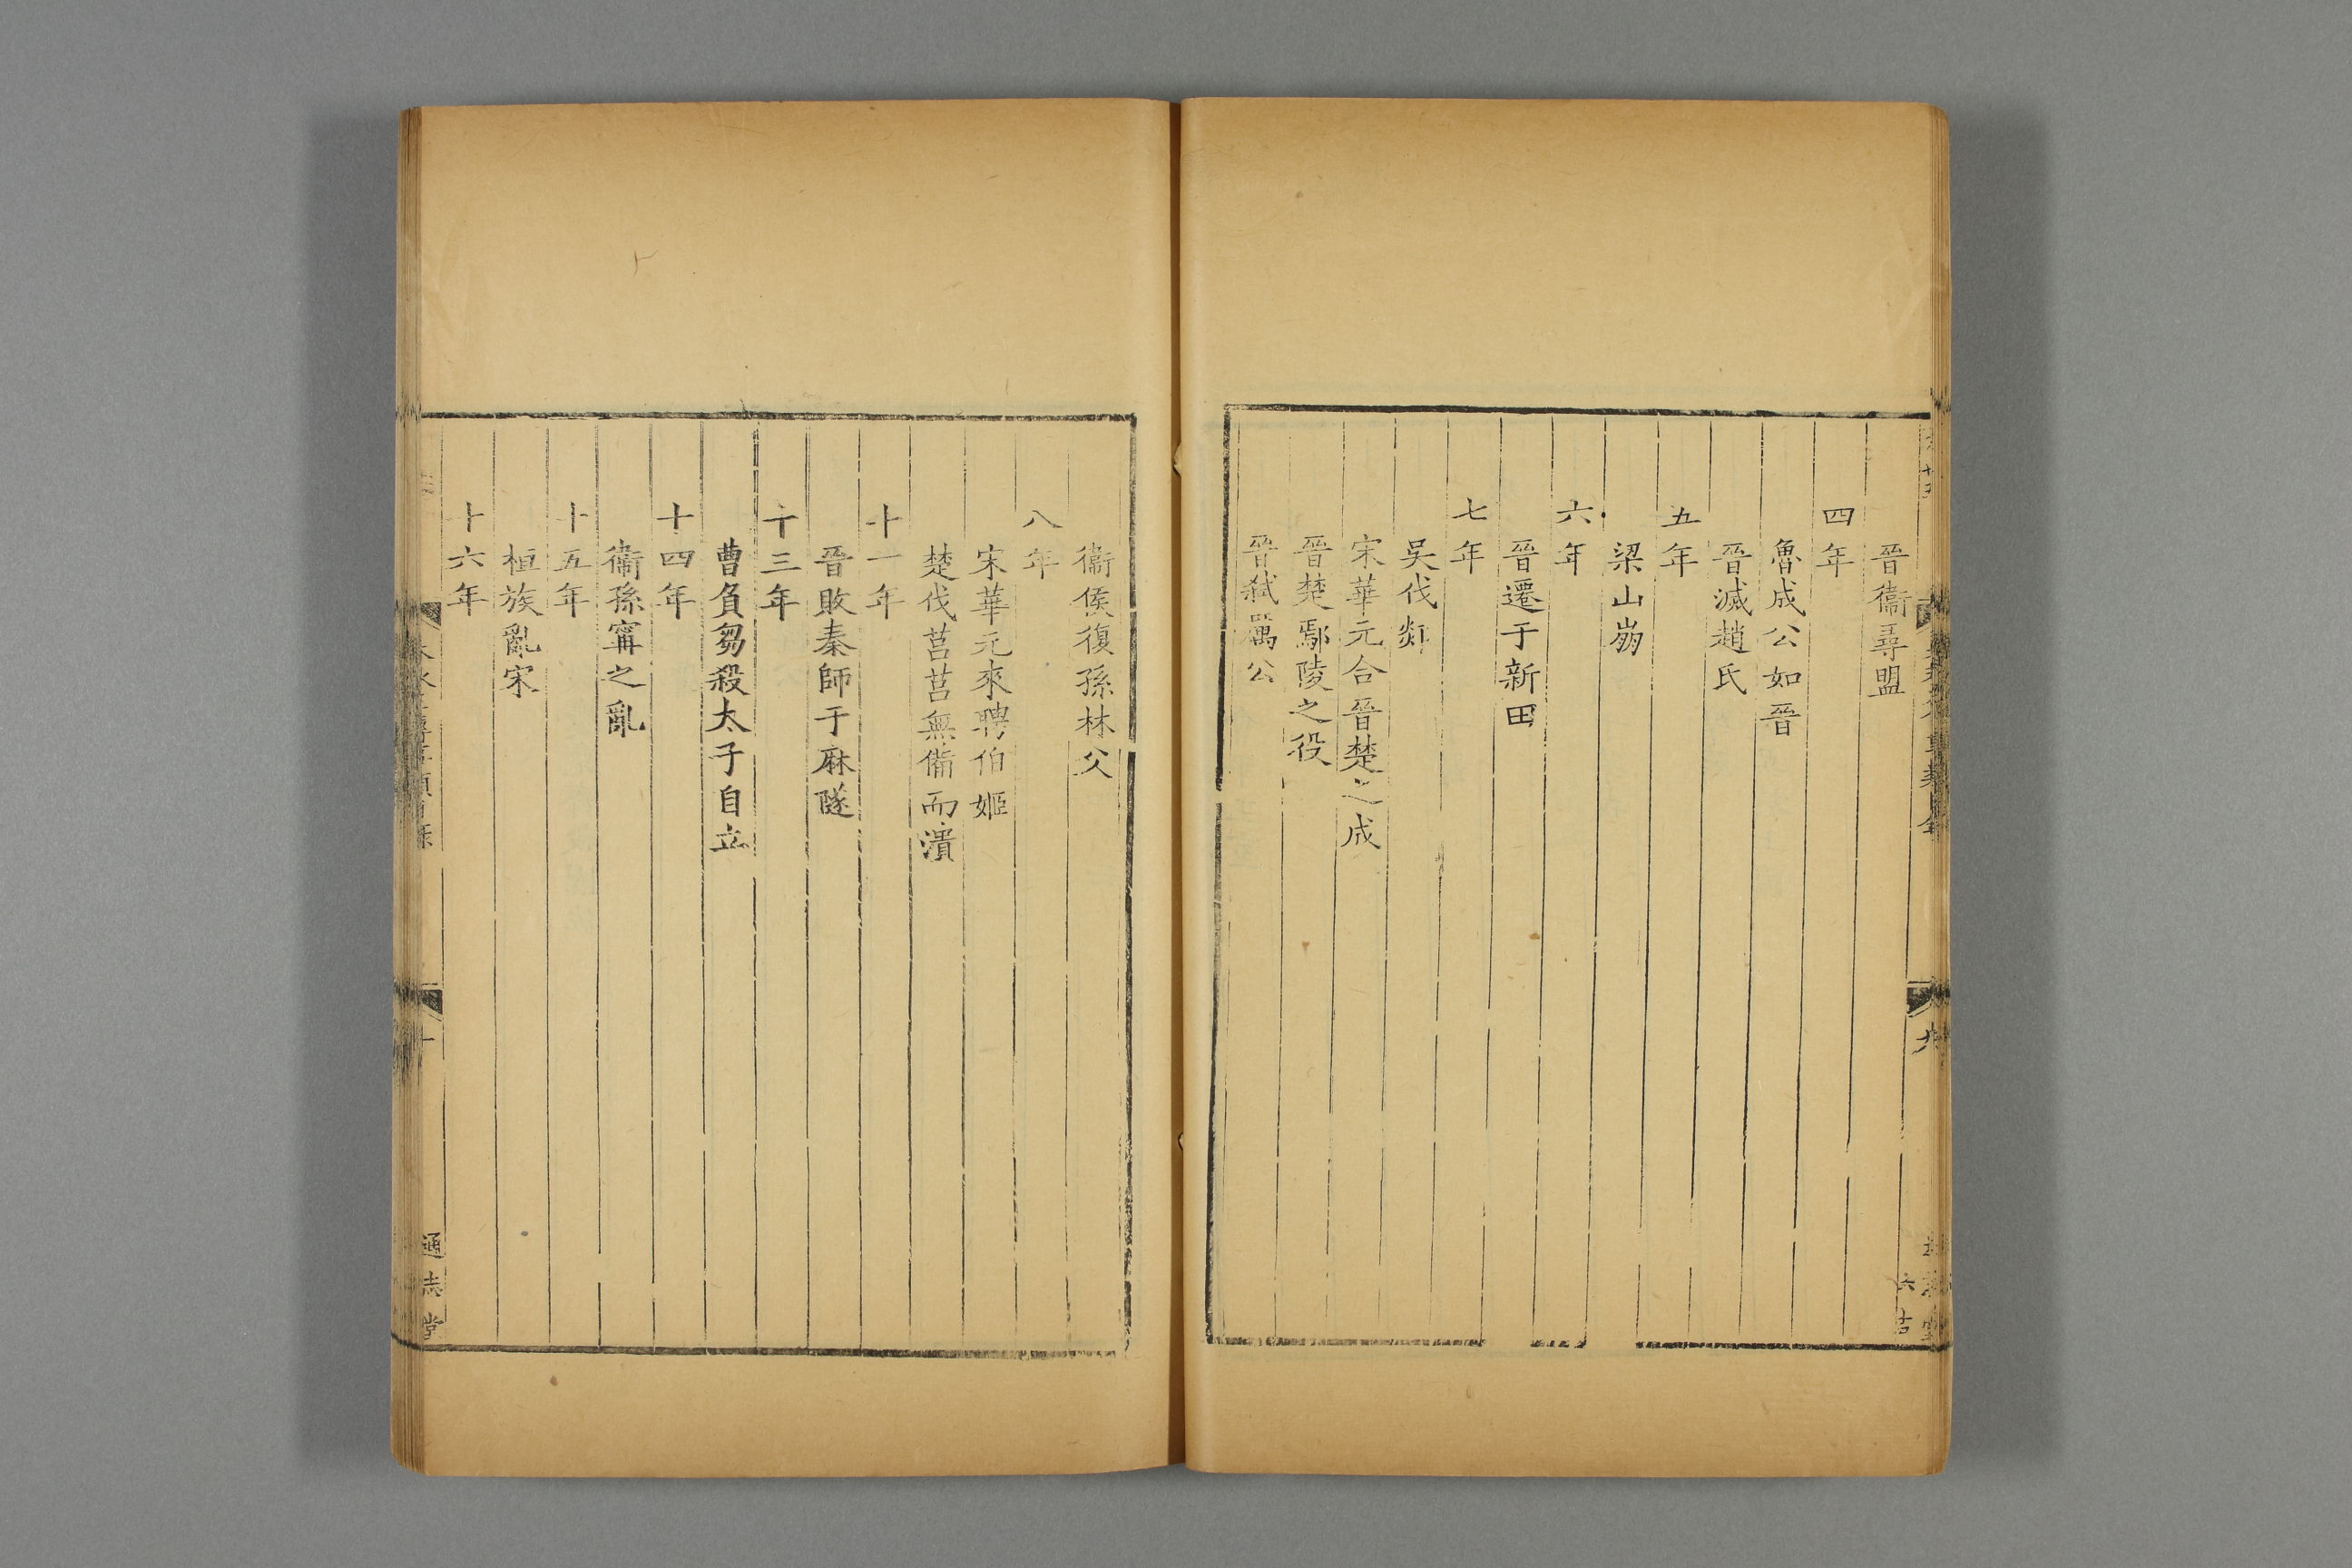 晉衞尋盟
四年
魯成公如晉
晉滅趙氏
五年
梁山崩
六年
晉遷于新田
七年
吳伐郯
宋華元合晉楚之成
晉楚鄢陵之役
晉弒厲公
衞侯復孫林父
八年
宋華元來聘伯姬
楚伐莒莒無備而潰
十一年
晉敗秦師于麻隧
十三年
曹負芻殺太子自立
十四年
衞孫甯之亂
十五年
桓族亂宋
十六年
通志堂